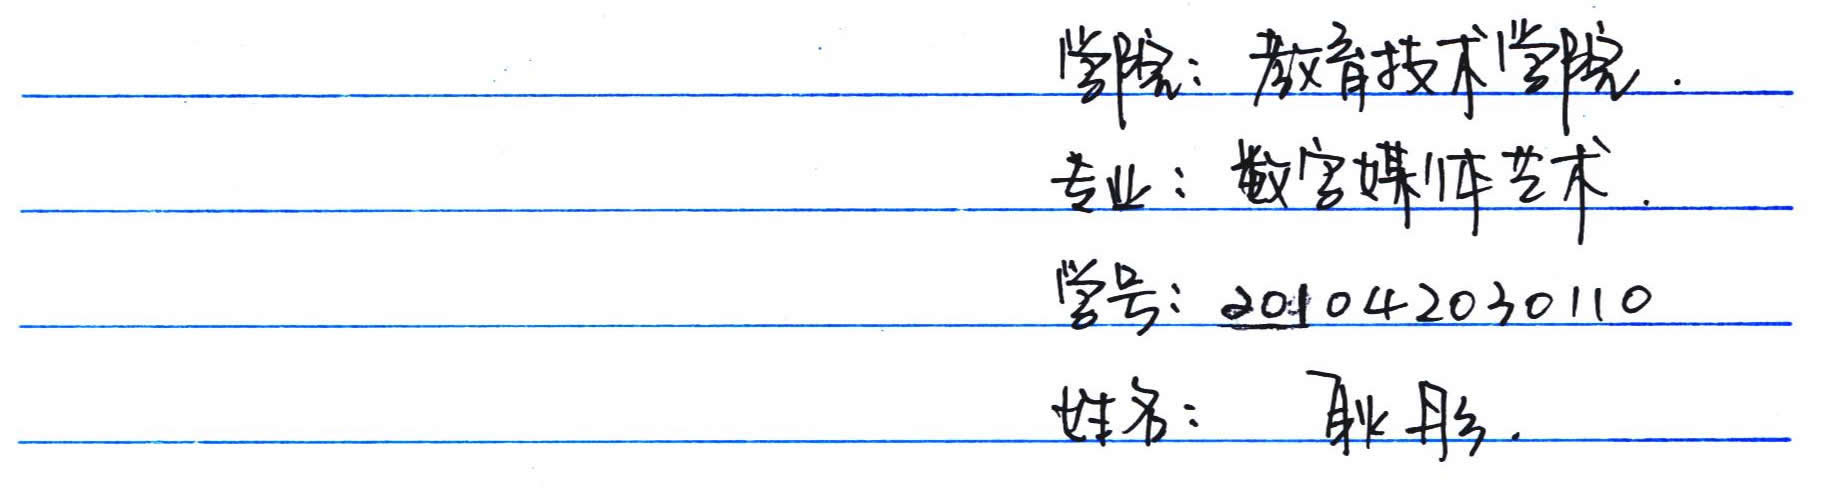 学院：教育技术学院.
专业：数字媒体艺术.
学号：201042030110
姓名：耿彤.